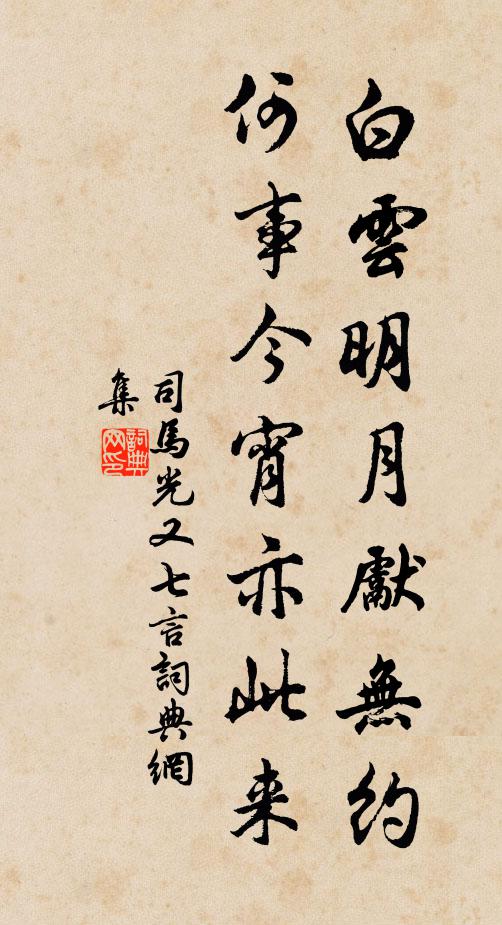 白雲明月獻無約
何事今宵亦此来
司馬光又七言詞典網
集
詞典网印